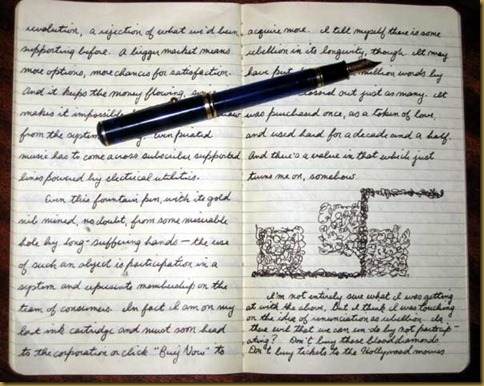 revolution, a rejection of what we'd been
supporting before. A bigger market means
more options, more chances for satisfaction.
And it keeps the money flowing,
makes it impossible
from the system Even pirated
music has to come across subscriber supported
lines powered by electrical utilities.
Even this fountain pen, with its gold
nib mined, no doubt, from some miserable
hole by long-suffering hands — the use
of such an object is participation in a
system and upticks membership on the
team of consumers. In fact I am on my
last ink cartridge and must soon head
to the corporation or click "Buy Now" to
acquire more. I tell myself there is some
rebellion in its longevity, though. It may
have put million words by
crossed out just as many. It
was purchased once, as a token of love,
and used hard for a decade and a half.
And there's a value in that which just
turns me on, somehow.
I'm not entirely sure what I was getting
at with the above, but I think I was touching
on the idea of renunciation as rebellion. Is
there evil that we can un-do by not particip-
ating? Don't buy those blood diamonds.
Don't buy tickets to the Hollywood movies